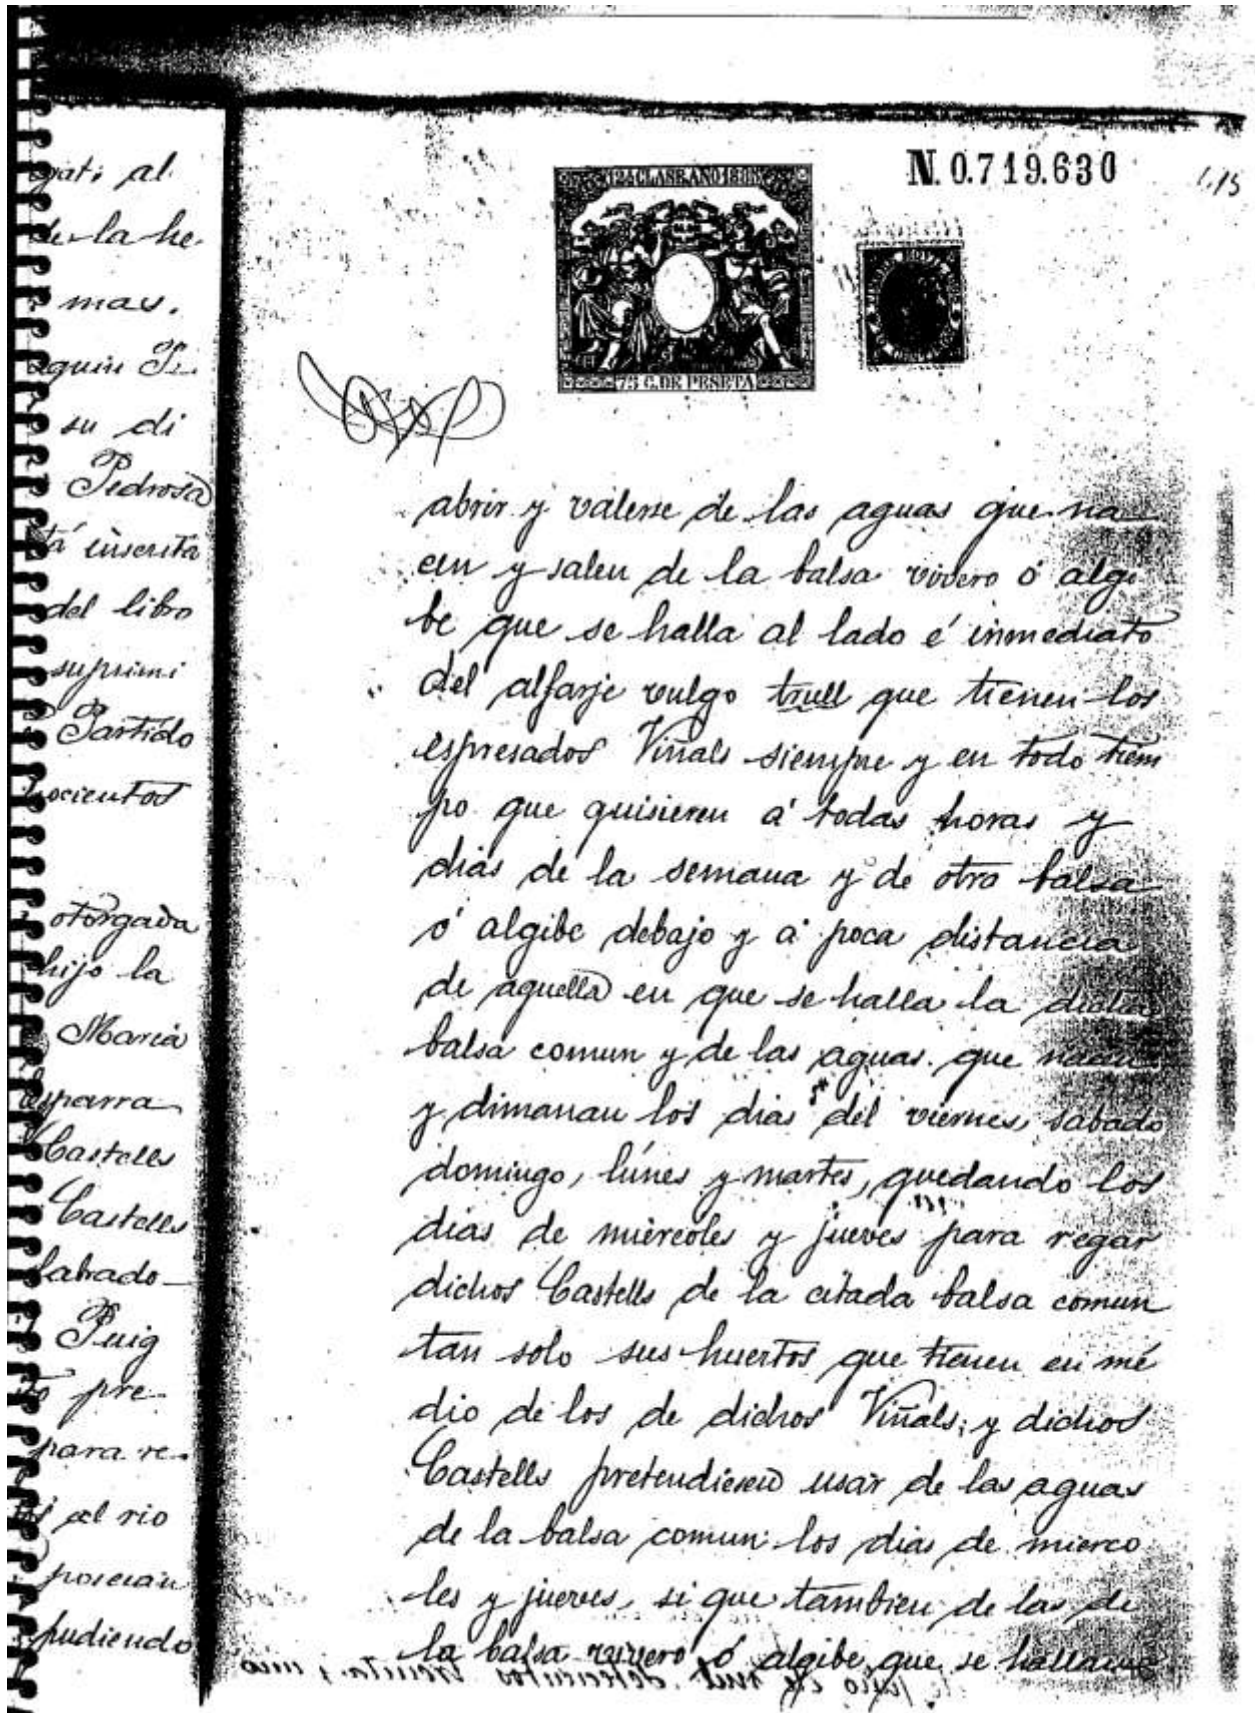 N. 0.719.630
75 C. DE PESETA
al
de la he
mas.
su di
Pedrosa
inscrita
del libro
suprimi
Partido
otorgada
hijo la
Maria
Castells
Castells
Puig
pre
para re
al rio
poseian
pudiendo
abrir y valerse de las aguas que na
cen y salen de la balsa vivero ó algi
be que se halla al lado é inmediato
del alfarje vulgo trull que tienen los
espresados Viñals siempre y en todo tiem
po que quisieren á todas horas y
dias de la semana y de otra balsa
ó algibe debajo y á poca distancia
de aquella en que se halla la dicha
balsa comun y de las aguas que nacen
y dimanan los dias del viernes, sabado
domingo, lúnes y martes, quedando los
dias de miercoles y jueves para regar
dichos Castells de la citada balsa comun
tan solo sus huertos que tienen en me
dio de los de dichos Viñals; y dichos
Castells pretendiesen usar de las aguas
de la balsa comun los dias de mierco
les y jueves, si que tambien de las de
la balsa vivero ó algibe que se halla